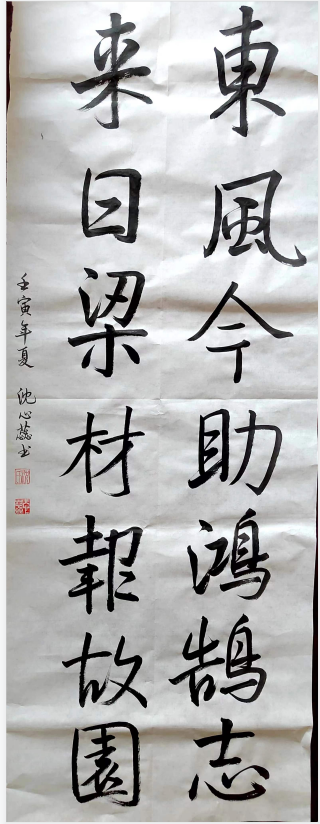 東風今助鴻鵠志
来日梁材報故園
壬寅年夏 沈心蕊书